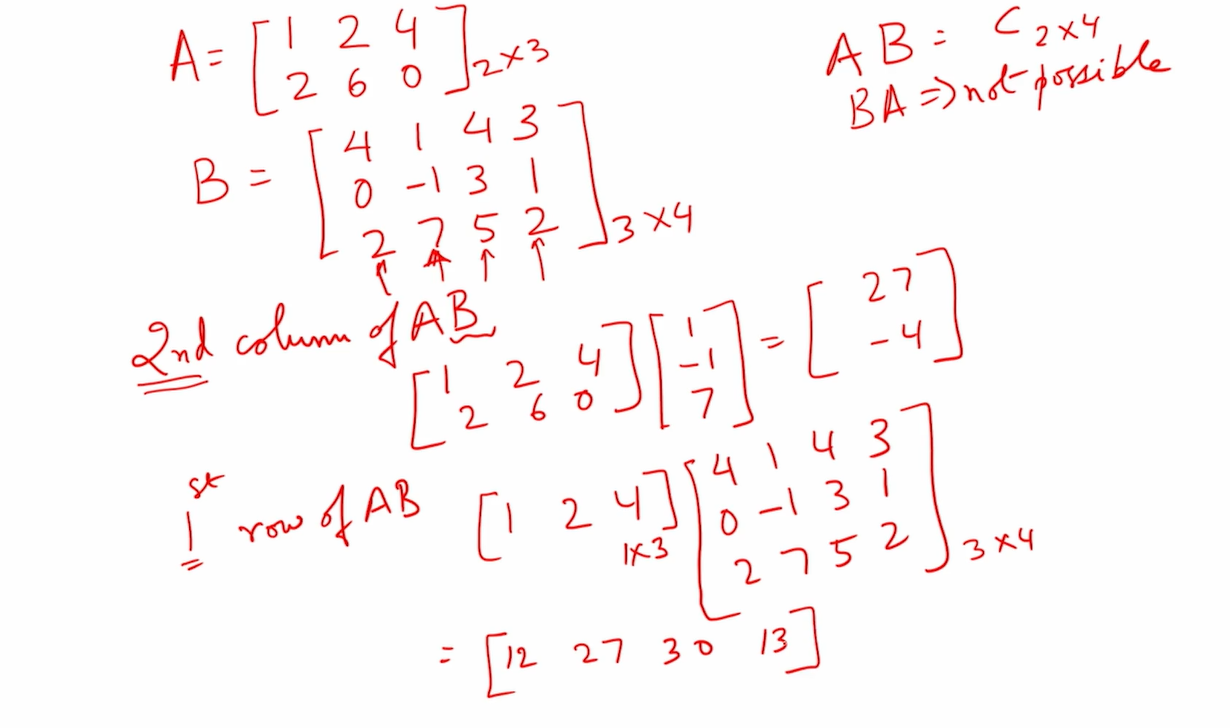 A = [ 1 2 4
2 6 0 ] 2×3
AB = C 2×4
BA ⇒ not possible
B = [ 4 1 4 3
0 -1 3 1
2 7 5 2 ] 3×4
2nd column of AB
[ 1 2 4
2 6 0 ] [ 1
-1
7 ] = [ 27
-4 ]
1st row of AB [ 1 2 4 ] 1×3 [ 4 1 4 3
0 -1 3 1
2 7 5 2 ] 3×4
= [ 12 27 30 13 ]